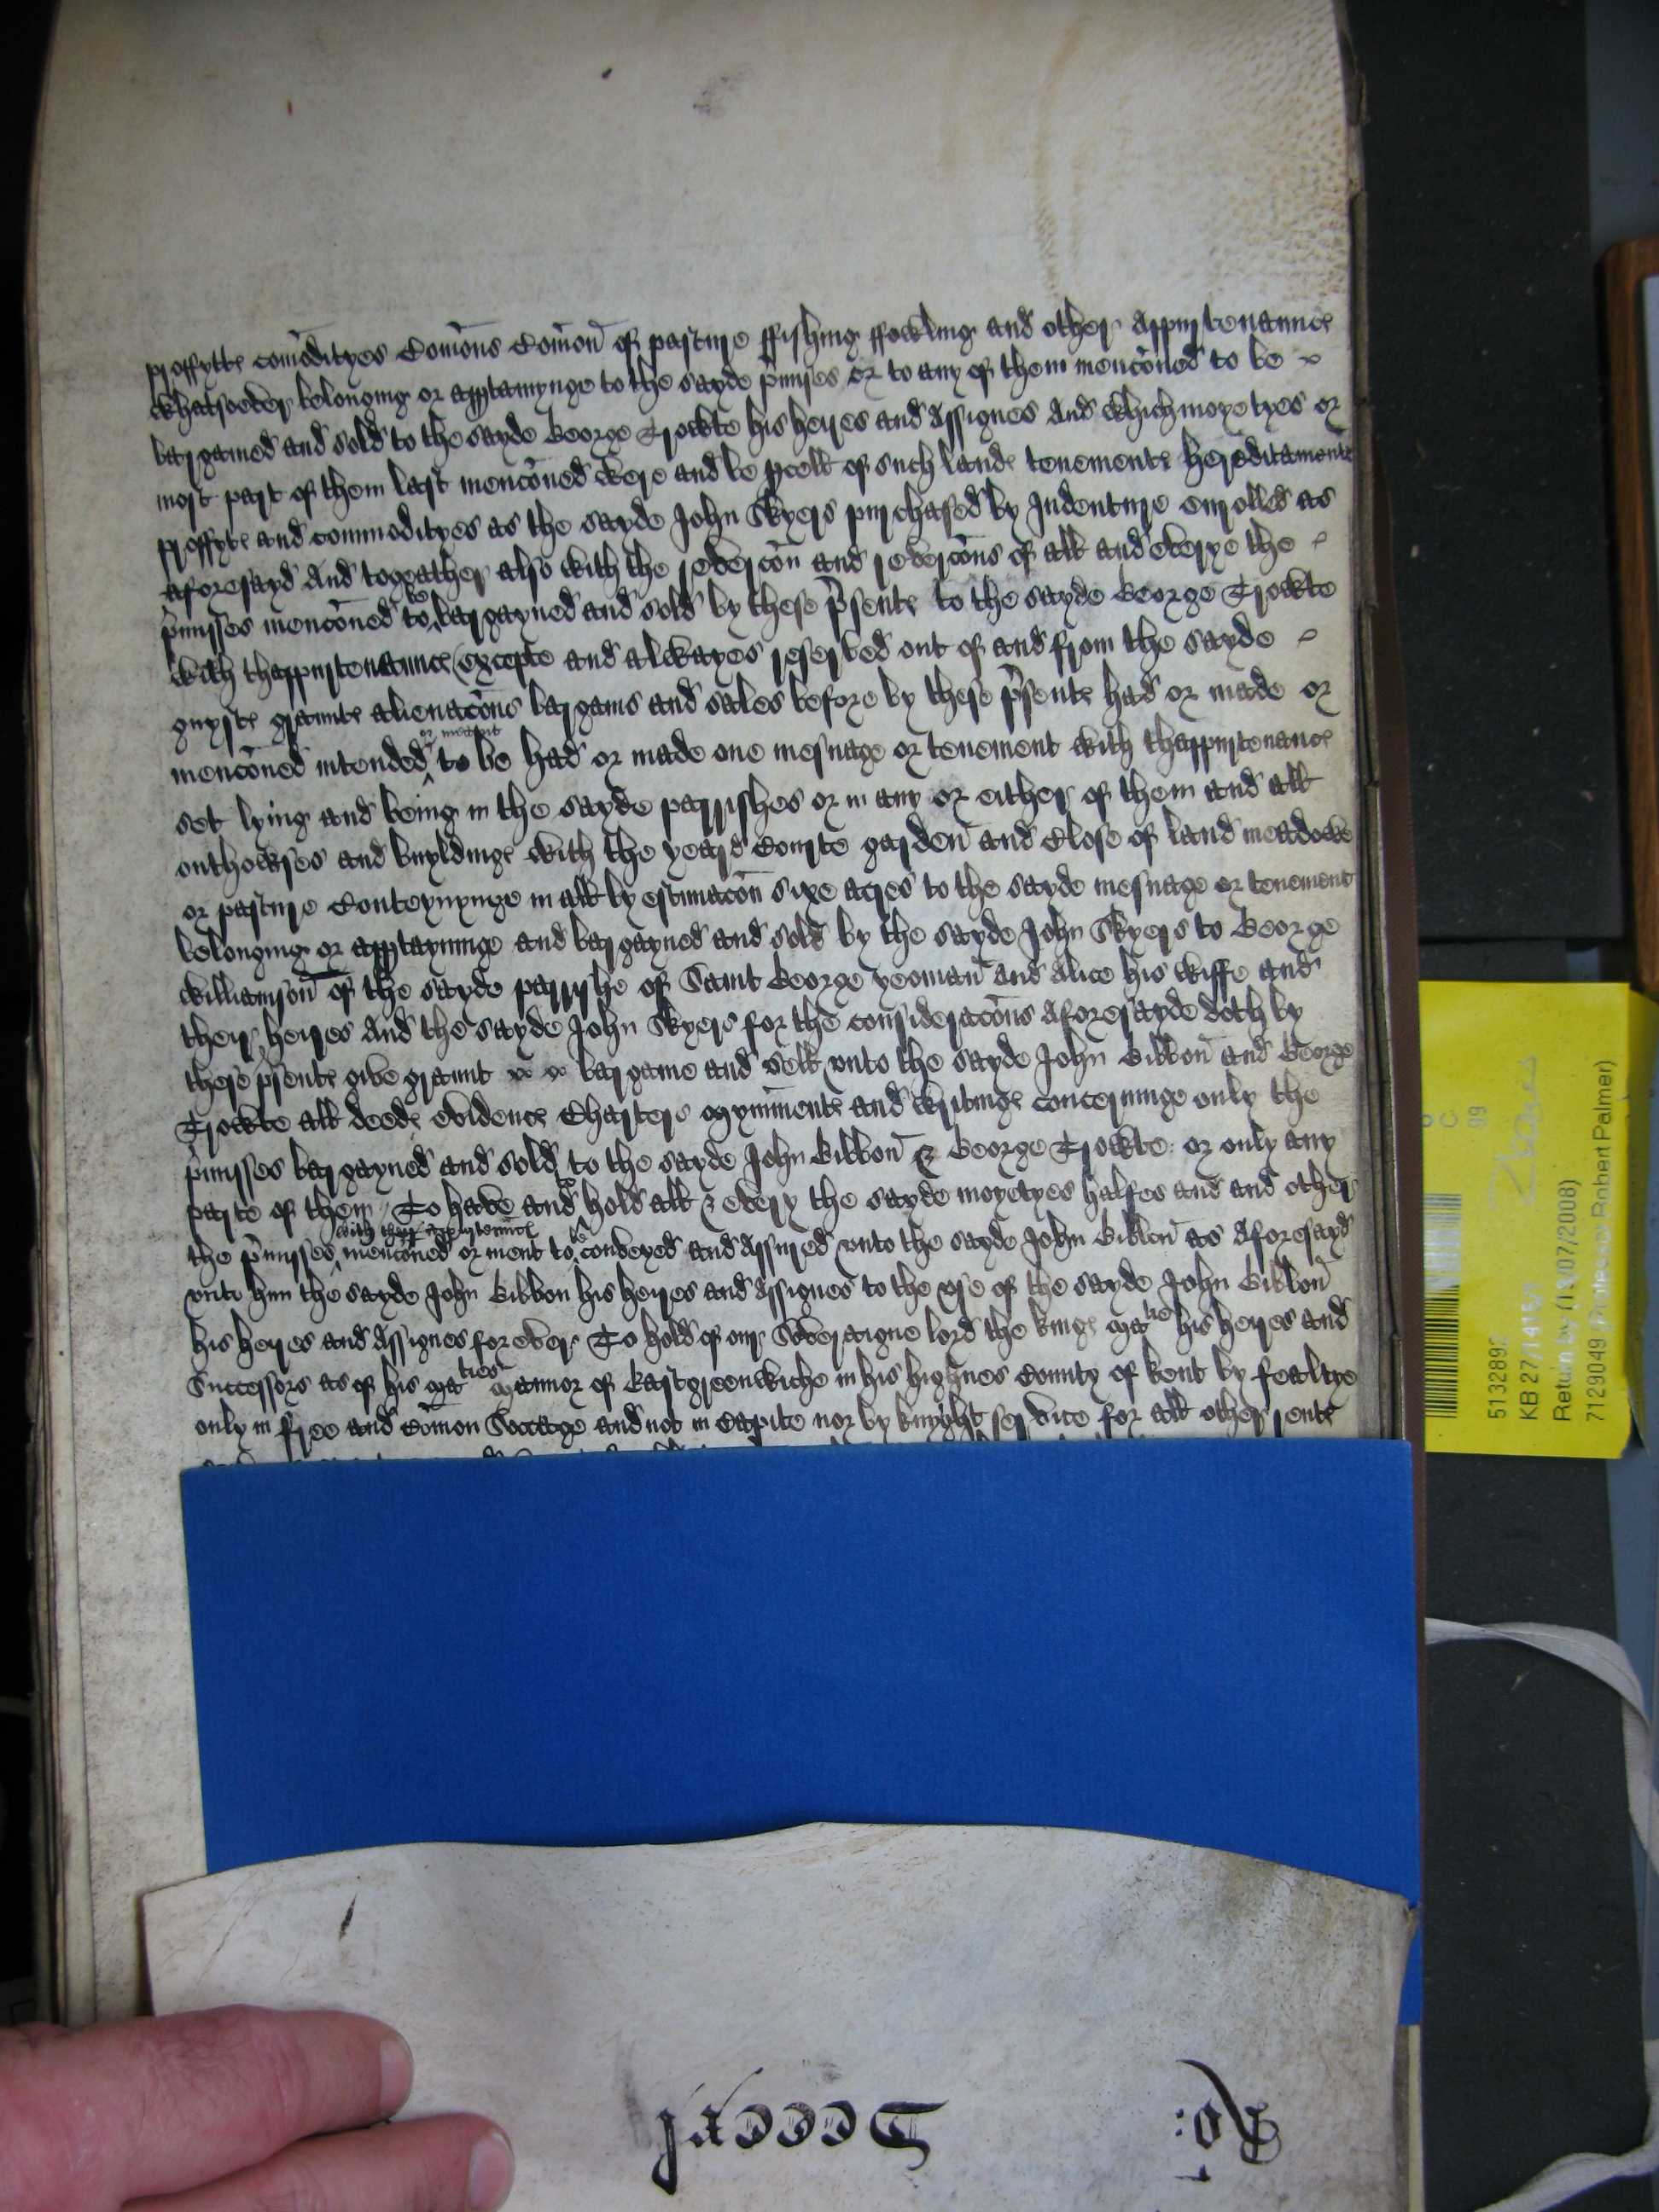 proffytte com̄odityes Com̄ons Com̄on of pasture ffishing ffowling and other Appurtenaunce
whatsoever belonging or appertaynynge to the sayde p̄misses or to any of them menc̄oned to be
bargained and sold to the sayde George Trowte his heyres and Assignes And which moyetyes or
most part of them last menc̄oned were and be pcell of such lande tenemente hereditamente
proffyte and commodityes as the sayde John Skyers purchased by Indenture enrolled as
aforesayd And togeather also with the reverc̄on and reverc̄ons of all and everye the
p̄misses menc̄oned to be bargayned and sold by these p̄sente to the sayde George Trowte
with thappurtenaunce excepte and alwayes reserved out of and from the sayde
guyfte graunte alienac̄ons bargains and sales before by these p̄sente had or made or
menc̄oned intended or meant to be had or made one mesuage or tenement with thappurtenance
set lying and being in the sayde parrishes or in any or either of them and all
outhowses and buyldinge with the yeard Courte garden and Close of land meadowe
or pasture Conteynynge in all by estimac̄on sixe acres to the sayde mesuage or tenement
belonging or appertayninge and bargayned and sold by the sayde John Skyers to George
Williamson of the sayde parryshe of Saint George yeoman and Alice his wiffe and
their heyres And the sayde John Skyers for the considerac̄ons Aforesayde doth by
these psente give graunt bargaine and sell unto the sayde John Gibbon and George
Trowte all deede evidence Charters mynimente and writinge concerninge only the
p̄misses bargayned and sold to the sayde John Gibbon & George Trowte or only any
parte of them To have and to hold all & every the sayde moyetyes halfes and and other
the p̄misses with their appurtennce menc̄oned or ment to be conveyed and Assured unto the sayde John Gibbon as Aforesayd
unto him the sayde John Gibbon his heyres and Assignes to the use of the sayde John Gibbon
his heyres and Assignes for ever To hold of our Soveraigne lord the kinge Matie his heyres and
Successors as of his Maties Mannor of Eastgreenwiche in his highnes County of Kent by fealtye
only in free and Com̄on Soccage and not in Capite nor by knyght service for all other rente
Ro:
5132892
KB 27/1415/1
Return by (13/07/2008)
7129049 (Professor Robert Palmer)